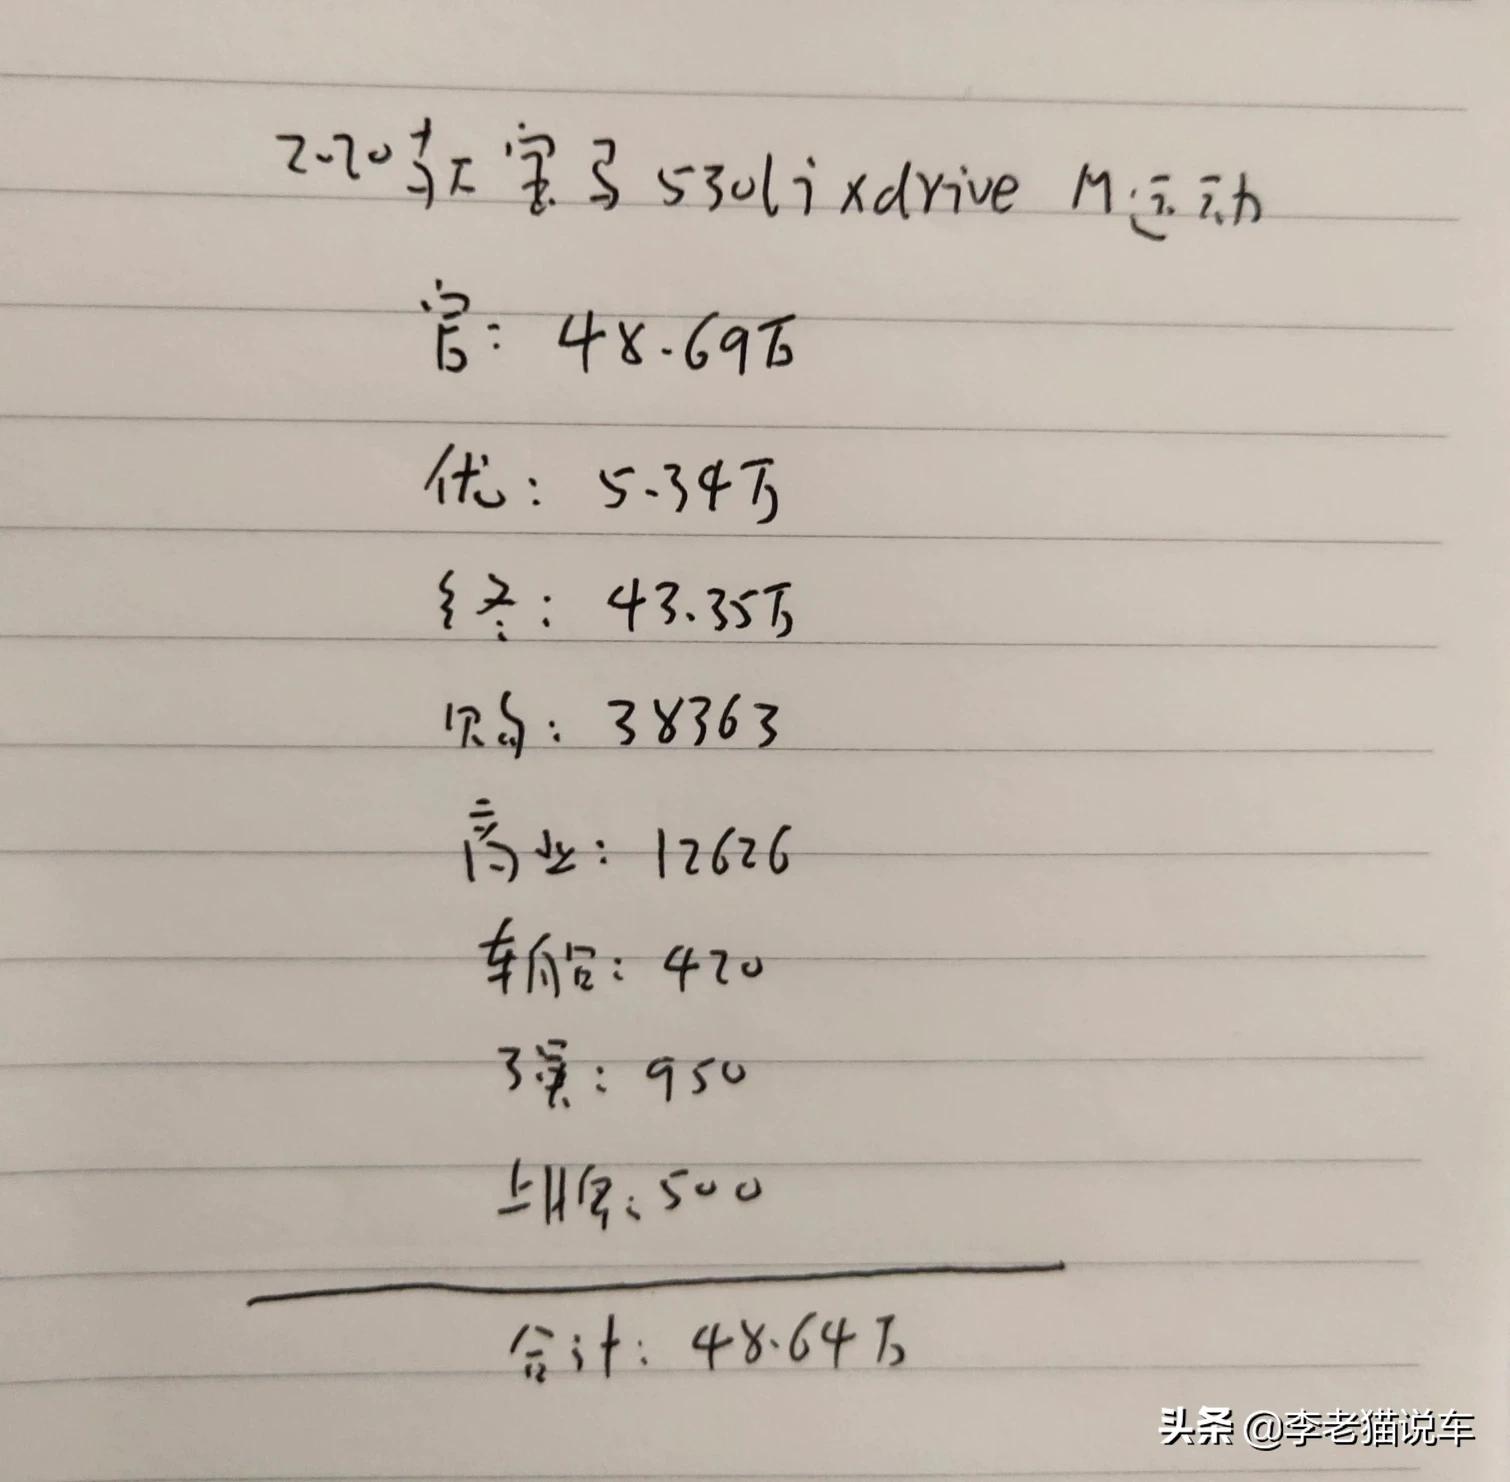 2020款宝马530li xdrive M运动
官：48.69万
优：5.34万
终：43.35万
购：38363
商业：12626
车船：420
交强：950
上牌：500
合计：48.64万
头条 @李老猫说车